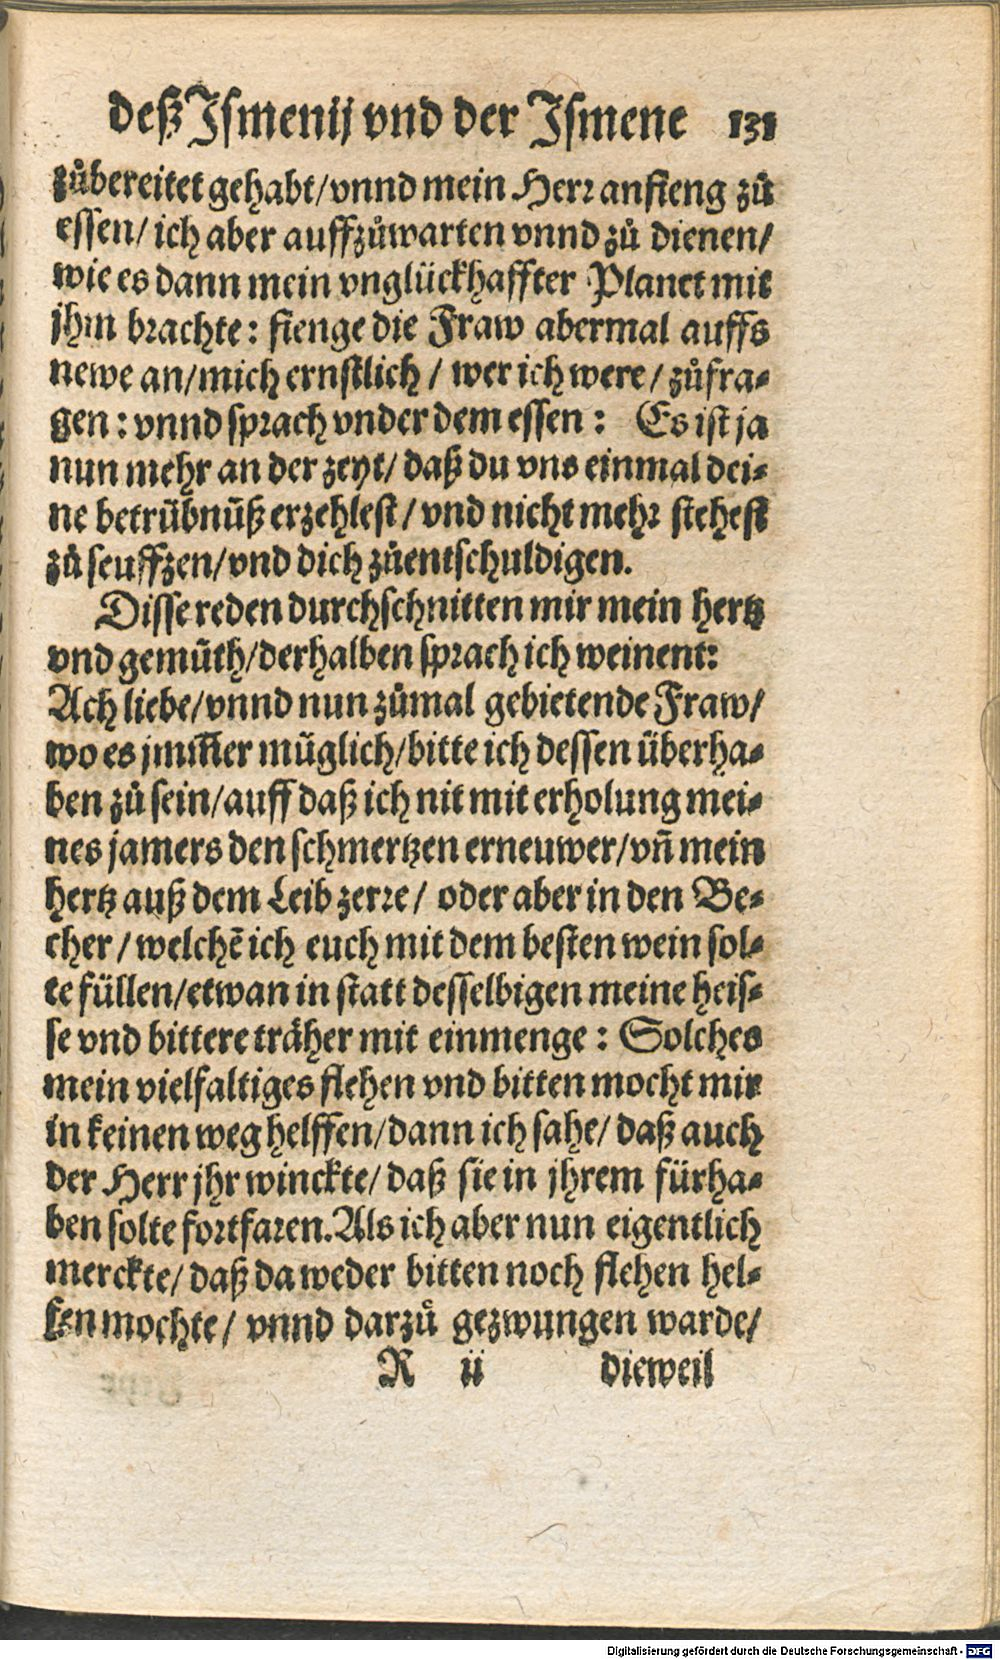 deß Ismenij vnd der Ismene 131
zůbereitet gehabt/vnnd mein Herr anfieng zů
essen/ ich aber auffzůwarten vnnd zů dienen/
wie es dann mein vnglückhaffter Planet mit
jhm brachte: fienge die Fraw abermal auffs
newe an/mich ernstlich / wer ich were/ zůfra-
gen: vnnd sprach vnder dem essen: Es ist ja
nun mehr an der zeyt/ daß du vns einmal dei-
ne betrübnüß erzehlest/ vnd nicht mehr stehest
zů seuffzen/vnd dich zůentschuldigen.
Disse reden durchschnitten mir mein hertz
vnd gemüth/derhalben sprach ich weinent:
Ach liebe/vnnd nun zůmal gebietende Fraw/
wo es jm̃er müglich/bitte ich dessen überha-
ben zů sein/auff daß ich nit mit erholung mei-
nes jamers den schmertzen erneuwer/vñ mein
hertz auß dem Leib zerre/ oder aber in den Be-
cher / welchē ich euch mit dem besten wein sol-
te füllen/etwan in statt desselbigen meine heis-
se vnd bittere träher mit einmenge: Solches
mein vielfaltiges flehen vnd bitten mocht mir
in keinen weg helffen/dann ich sahe/ daß auch
der Herr jhr winckte/ daß sie in jhrem fürha-
ben solte fortfaren. Als ich aber nun eigentlich
merckte/ daß da weder bitten noch flehen hel-
fen mochte/ vnnd darzů gezwungen warde/
R ii dieweil
Digitalisierung gefördert durch die Deutsche Forschungsgemeinschaft - DFG